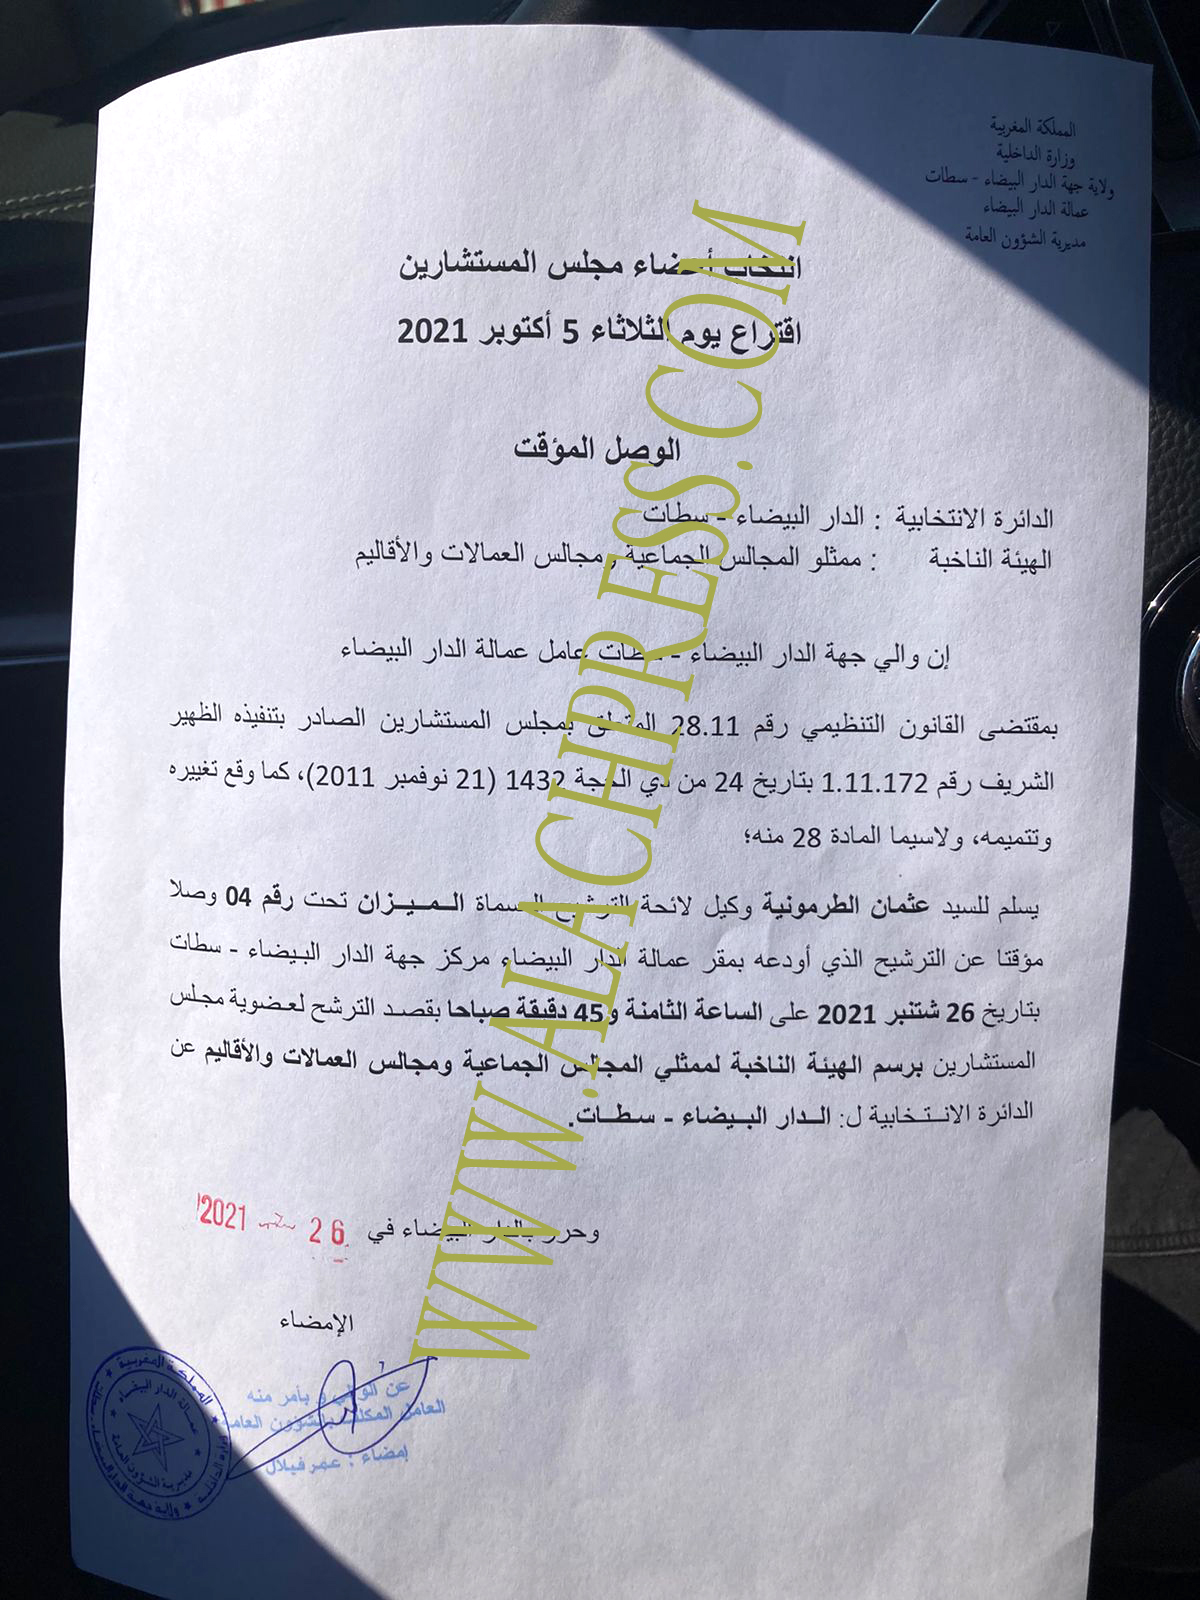 المملكة المغربية
وزارة الداخلية
ولاية جهة الدار البيضاء - سطات
عمالة الدار البيضاء
مديرية الشؤون العامة
انتخاب أعضاء مجلس المستشارين
اقتراع يوم الثلاثاء 5 أكتوبر 2021
الوصل المؤقت
الدائرة الانتخابية : الدار البيضاء - سطات
الهيئة الناخبة : ممثلو المجالس الجماعية ومجالس العمالات والأقاليم
إن والي جهة الدار البيضاء - سطات عامل عمالة الدار البيضاء
بمقتضى القانون التنظيمي رقم 28.11 المتعلق بمجلس المستشارين الصادر بتنفيذه الظهير
الشريف رقم 1.11.172 بتاريخ 24 من ذي الحجة 1432 (21 نوفمبر 2011)، كما وقع تغييره
وتتميمه، ولاسيما المادة 28 منه؛
يسلم للسيد عثمان الطرمونية وكيل لائحة الترشيح المسماة الـمـيـزان تحت رقم 04 وصلا
مؤقتا عن الترشيح الذي أودعه بمقر عمالة الدار البيضاء مركز جهة الدار البيضاء - سطات
بتاريخ 26 شتنبر 2021 على الساعة الثامنة و45 دقيقة صباحا بقصد الترشح لعضوية مجلس
المستشارين برسم الهيئة الناخبة لممثلي المجالس الجماعية ومجالس العمالات والأقاليم عن
الدائرة الانـتـخـابية ل: الـدار البـيضاء - سـطـات.
وحرر بالدار البيضاء في 26 2021
الإمضاء
عن الوالي و بأمر منه
العامل المكلف بالشؤون العامة
إمضاء : عمر فيلال
المملكة المغربية
وزارة الداخلية
ولاية جهة الدار البيضاء - سطات
عمالة الدار البيضاء
مديرية الشؤون العامة
WWW.ALACHPRESS.COM